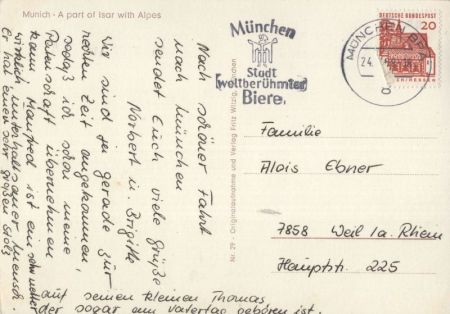 Munich - A part of Isar with Alpes
Nach schöner Fahrt
nach München
sendet Euch viele Grüße
Norbert u. Brigitte
Wir sind in gerade zur
rechten Zeit angekommen,
sodaß ich schon meine
Patenschaft übernehmen
kann, Manfred ist ein sehr netter
wirklich unterhaltsamer Mensch.
Er hat einen sehr großen Stolz
auf seinen kleinen Thomas
der sogar am Vatertag geboren ist.
Nr. 29 - Originalaufnahme und Verlag Fritz Witzig, München
München
Stadt
weltberühmter
Biere.
MÜNCHEN
24.
a
DEUTSCHE BUNDESPOST
20
Familie
Alois Ebner
7858 Weil /a. Rhein
Hauptstr. 225